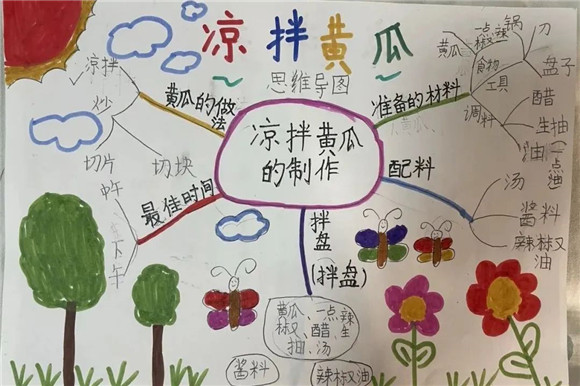 凉拌黄瓜
思维导图
凉拌黄瓜
的制作
黄瓜的做
法
凉拌
炒
切片
切块
最佳时间
中午
下午
准备的材料
黄瓜
一点
辣椒
食物
工具
锅
刀
盘子
调料
醋
生抽
油
(一点油
配料
汤
酱料
辣椒
油
拌
盘
(拌盘)
黄瓜、一点辣
椒、醋、生
抽、汤
酱料
辣椒油